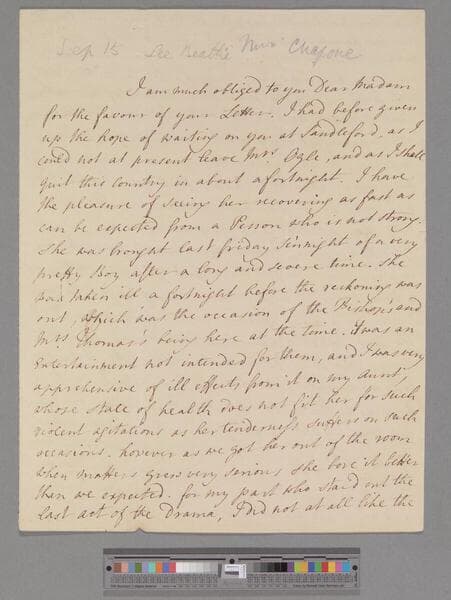 Sep 15 See Mrs Chapone
I am much obliged to you Dear Madam
for the favour of your Letter. I had before given
up the hope of waiting on you at Sandleford, as I
could not at present leave Mrs. Ogle, and as I shall
quit this Country in about a fortnight. I have
the pleasure of seeing her recovering as fast as
can be expected from a Person who is not strong.
She was brought last friday se'nnight of a very
pretty Boy after a long and severe time. She
was taken ill a fortnight before the reckoning was
out, which was the occasion of the Bishop's and
Mrs Thomas's being here at the time. it was an
Entertainment not intended for them, and I was very
apprehensive of ill effects from it on my Aunt,
whose state of health does not fit her for such
violent agitations as her tenderness suffers on such
occasions. however as we got her out of the room
when matters grew very serious she bore it better
than we expected. for my part who staid out the
last act of the Drama, I did not at all like the